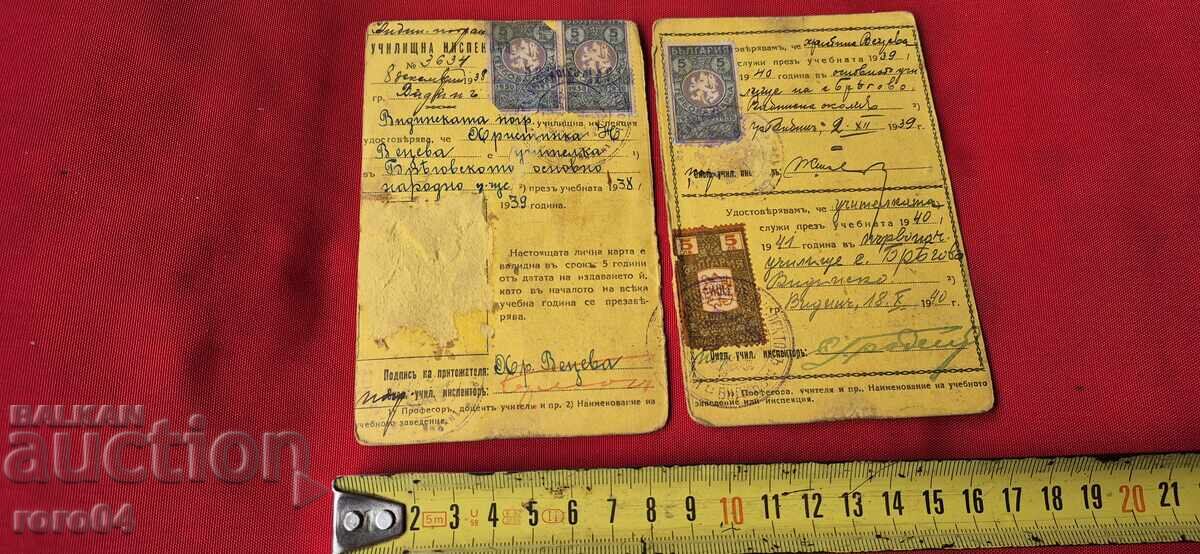 УЧИЛИЩНА ИНСПЕК
№ 3634
8 декемврий 1938
гр. Видинъ
5 5
5 5
Видинската погр. училищна инспекция
удостовѣрява, че Христинка Н.
Вецева с учителка 1)
въ Брѣговското основно
народно у-ще 2) презъ учебната 1938/
1939 година.
Настоящата лична карта е
валидна въ срокъ 5 години
отъ датата на издаването ѝ,
като въ началото на всѣка
учебна година се презавѣ-
рява.
Подпись на притежателя: Хр. Вецева
учил. инспекторъ:
1) Професоръ, доцентъ учитель и пр. 2) Наименование на
учебното заведение.
БЪЛГАРИЯ
5 5
Удостовѣрявамъ, че Христинка Вецева
служи презъ учебната 1939/
1940 година въ основното учи-
лище на с. Брѣгово
Видинска околия 2)
гр. Видинъ, 2-XII 1939 г.
учил. инспекторъ:
Удостовѣрявамъ, че учителката
служи презъ учебната 1940/
1941 година въ първонач.
училище с. Брѣгово
Видинско 2)
гр. Видинъ, 18.X 1940 г.
5 5
БЪЛГАРИЯ
учил. инспекторъ:
1) Професора, учителя и пр. Наименование на учебното
заведение или инспекция.
BALKAN
auction
roro64
2 5m 3 4 5 II 6 7 8 9 10 11 12 13 14 15 16 17 18 19 20 21